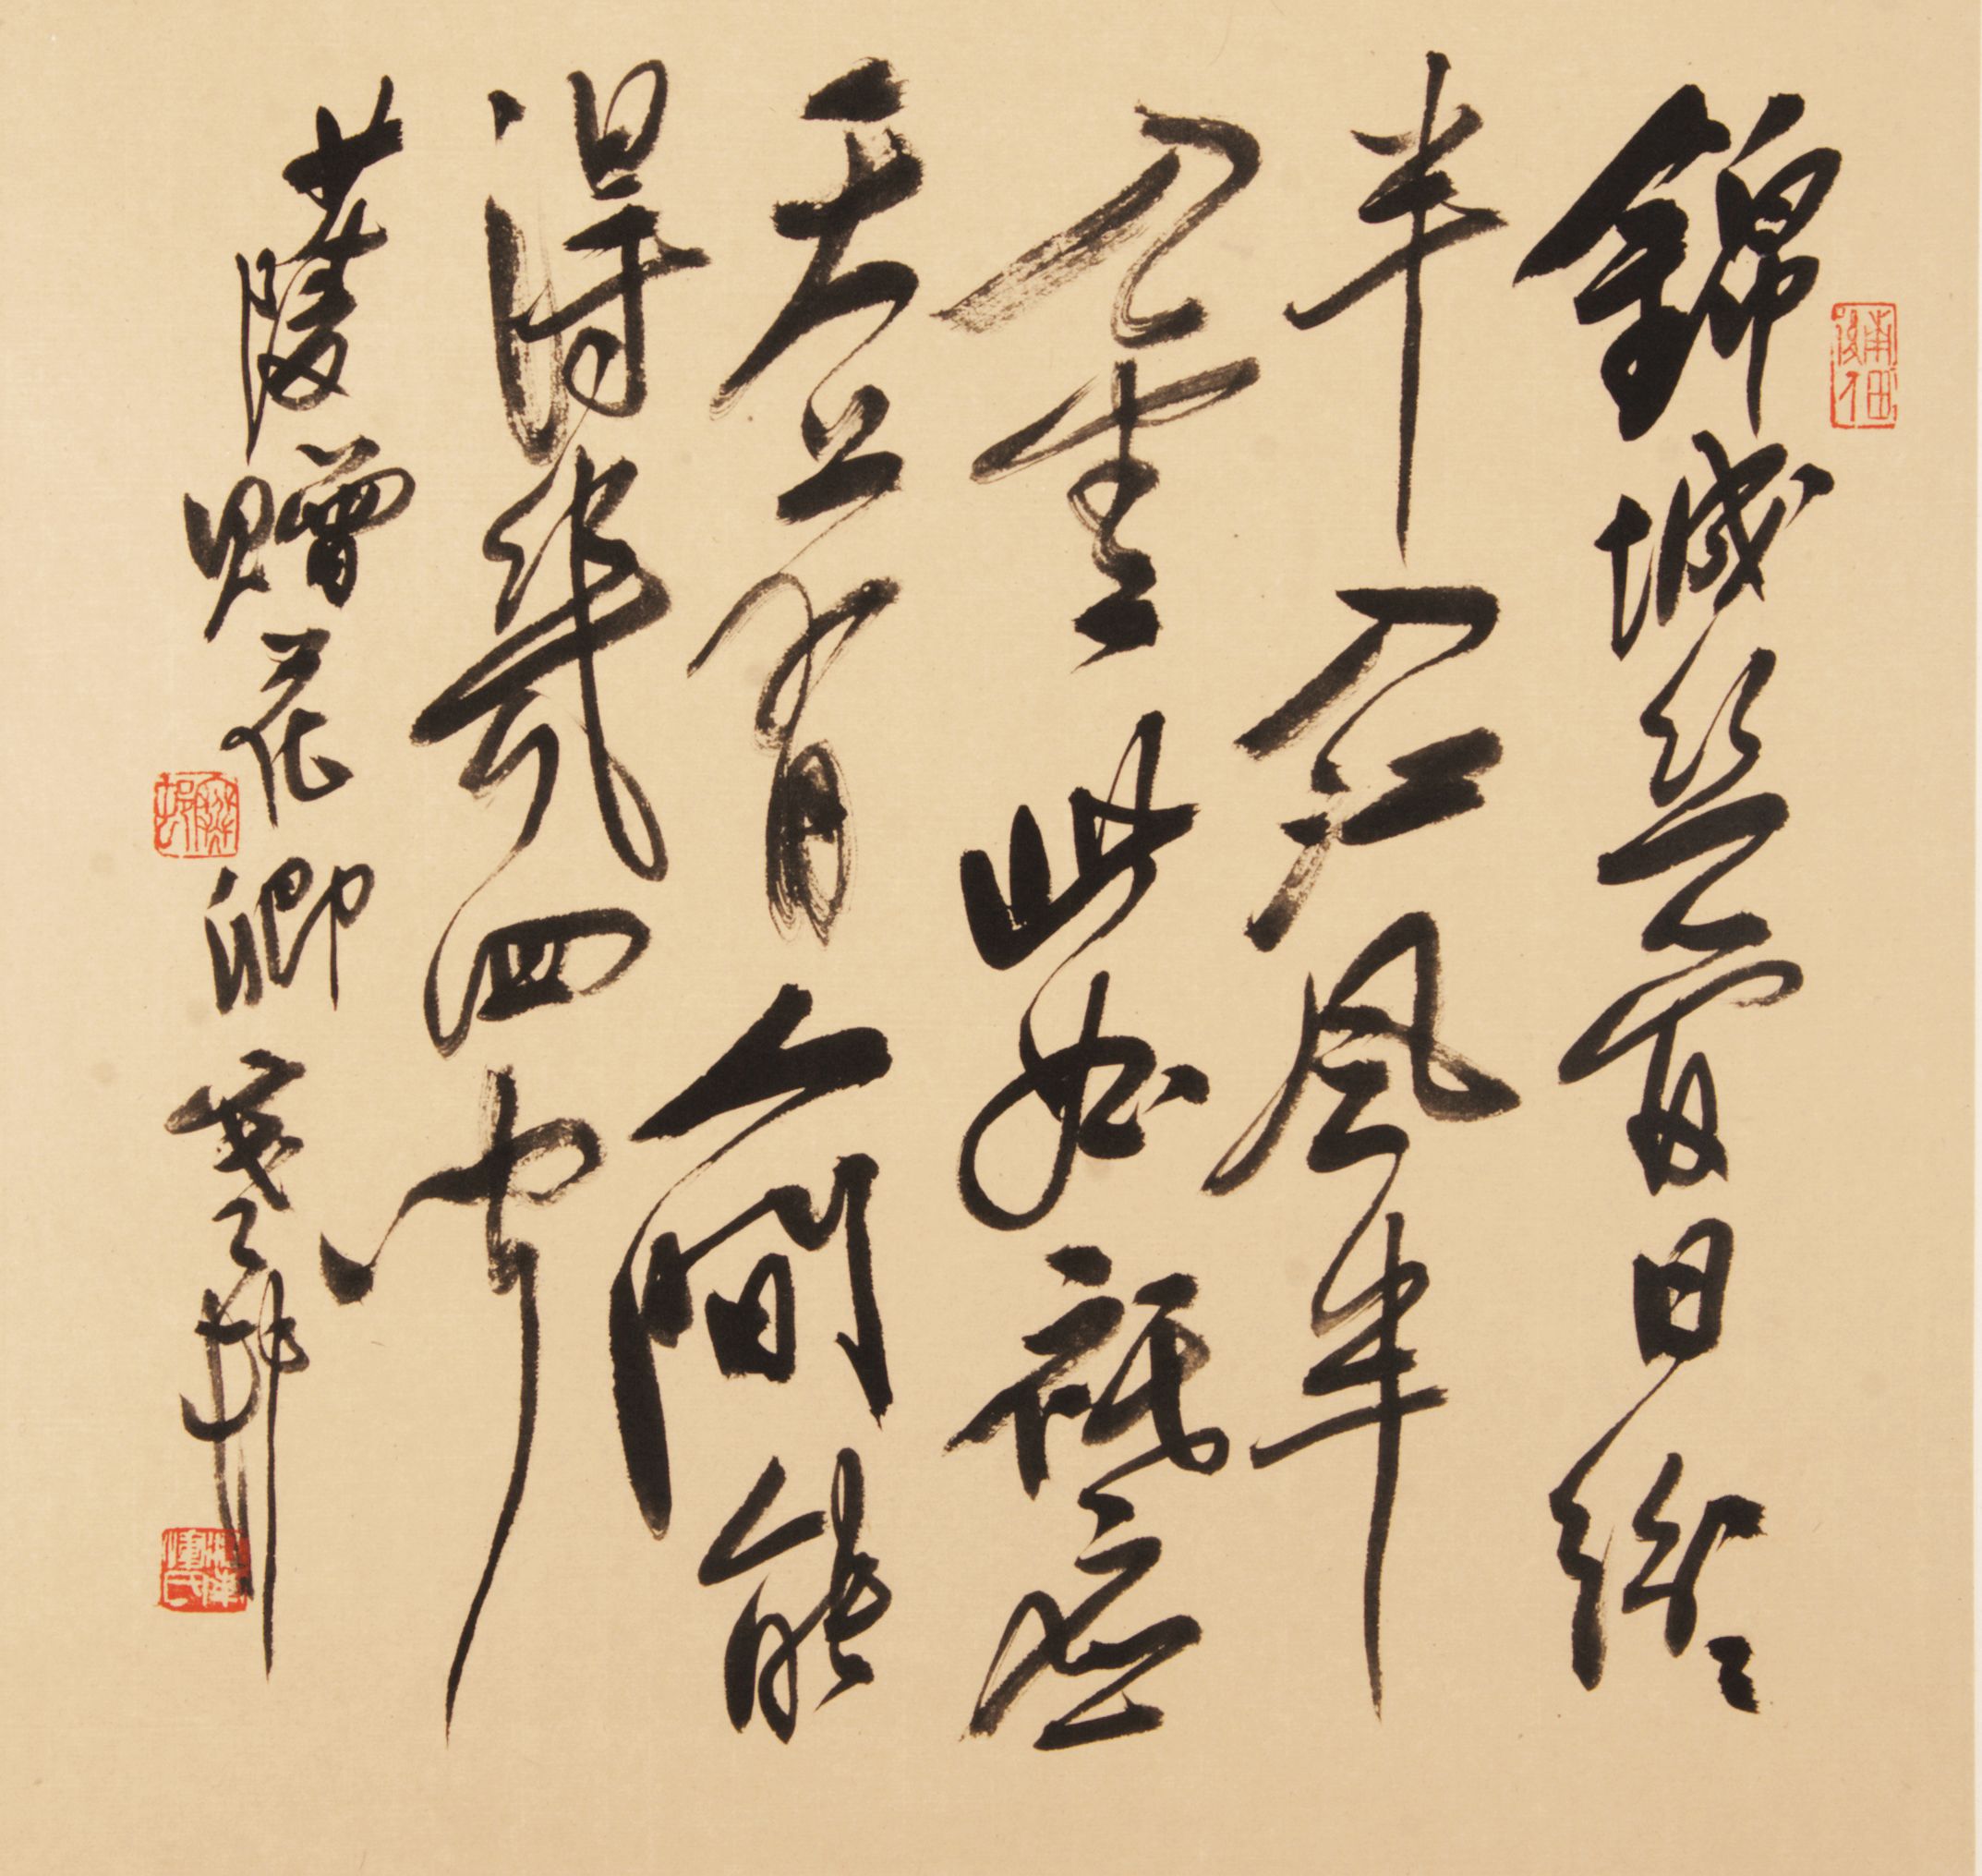 錦城絲管日紛々
半入江風半
入雲此曲祇應
天上有人間能
得幾回聞
贈花卿